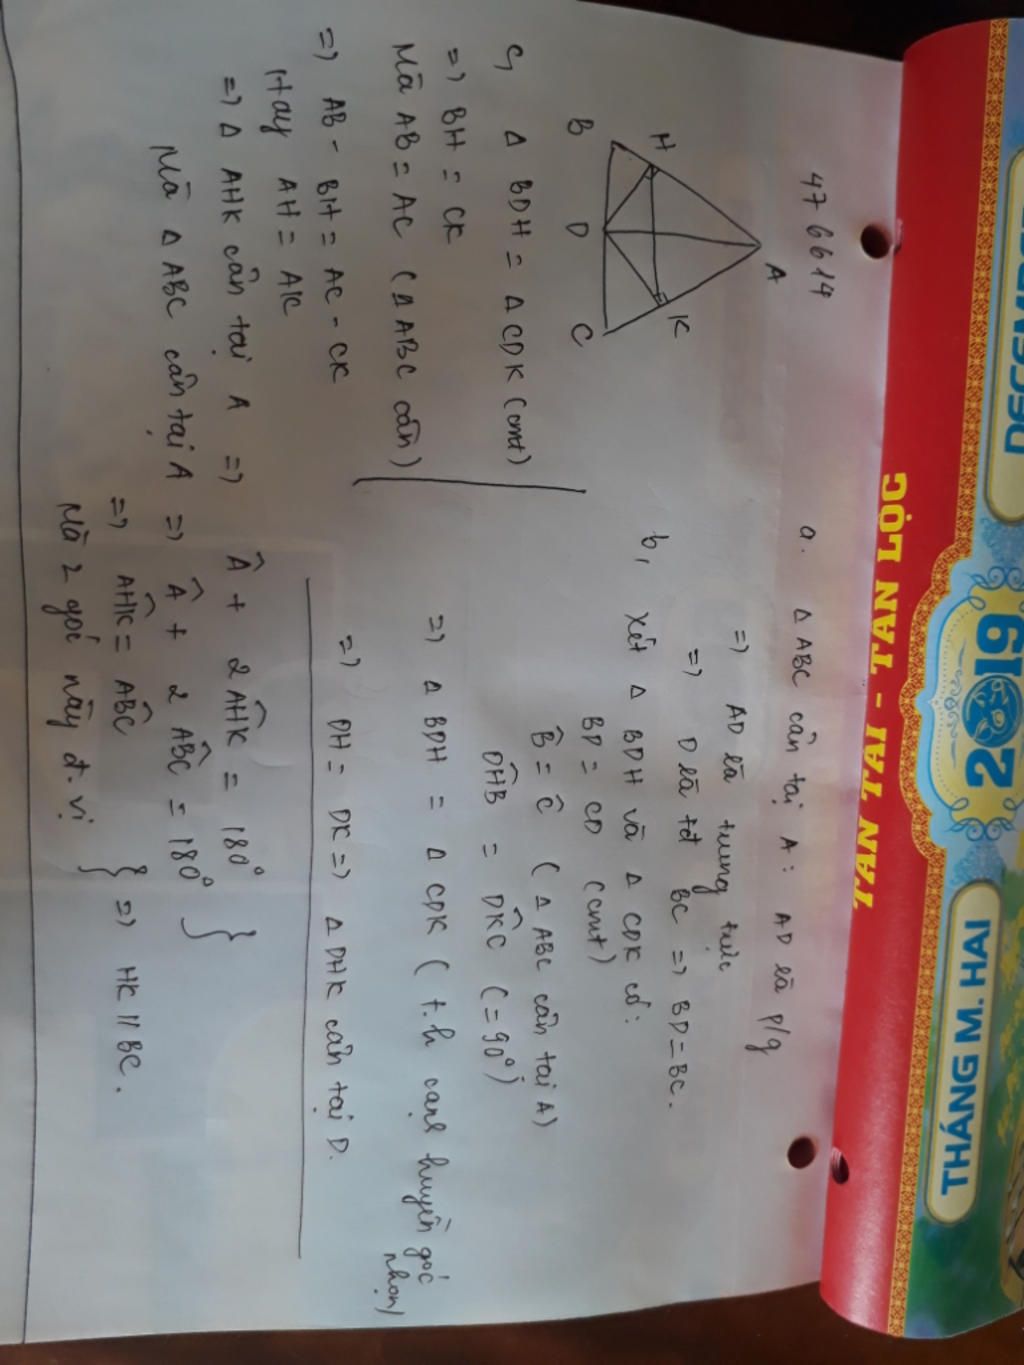 DECEMBER
2019
THÁNG M. HAI
TẤN TÀI - TẤN LỘC
476614
A
H
K
B
D
C
a. Δ ABC cân tại A: AD là p/g
=> AD là trung trực
=> D là tđ BC => BD = BC.
b, Xét Δ BDH và Δ CDK có:
BD = CD (cmt)
B̂ = Ĉ (Δ ABC cân tại A)
DĤB = DK̂C (=90°)
=> Δ BDH = Δ CDK (t.h cạnh huyền góc nhọn)
=> DH = DK => Δ DHK cân tại D.
c, Δ BDH = Δ CDK (cmt)
=> BH = CK
Mà AB = AC (Δ ABC cân)
=> AB - BH = AC - CK
Hay AH = AK
=> Δ AHK cân tại A => Â + 2 AĤK = 180°
Mà Δ ABC cân tại A => Â + 2 AB̂C = 180° }
=> AĤK = AB̂C
Mà 2 góc này đ.vị } => HK // BC.